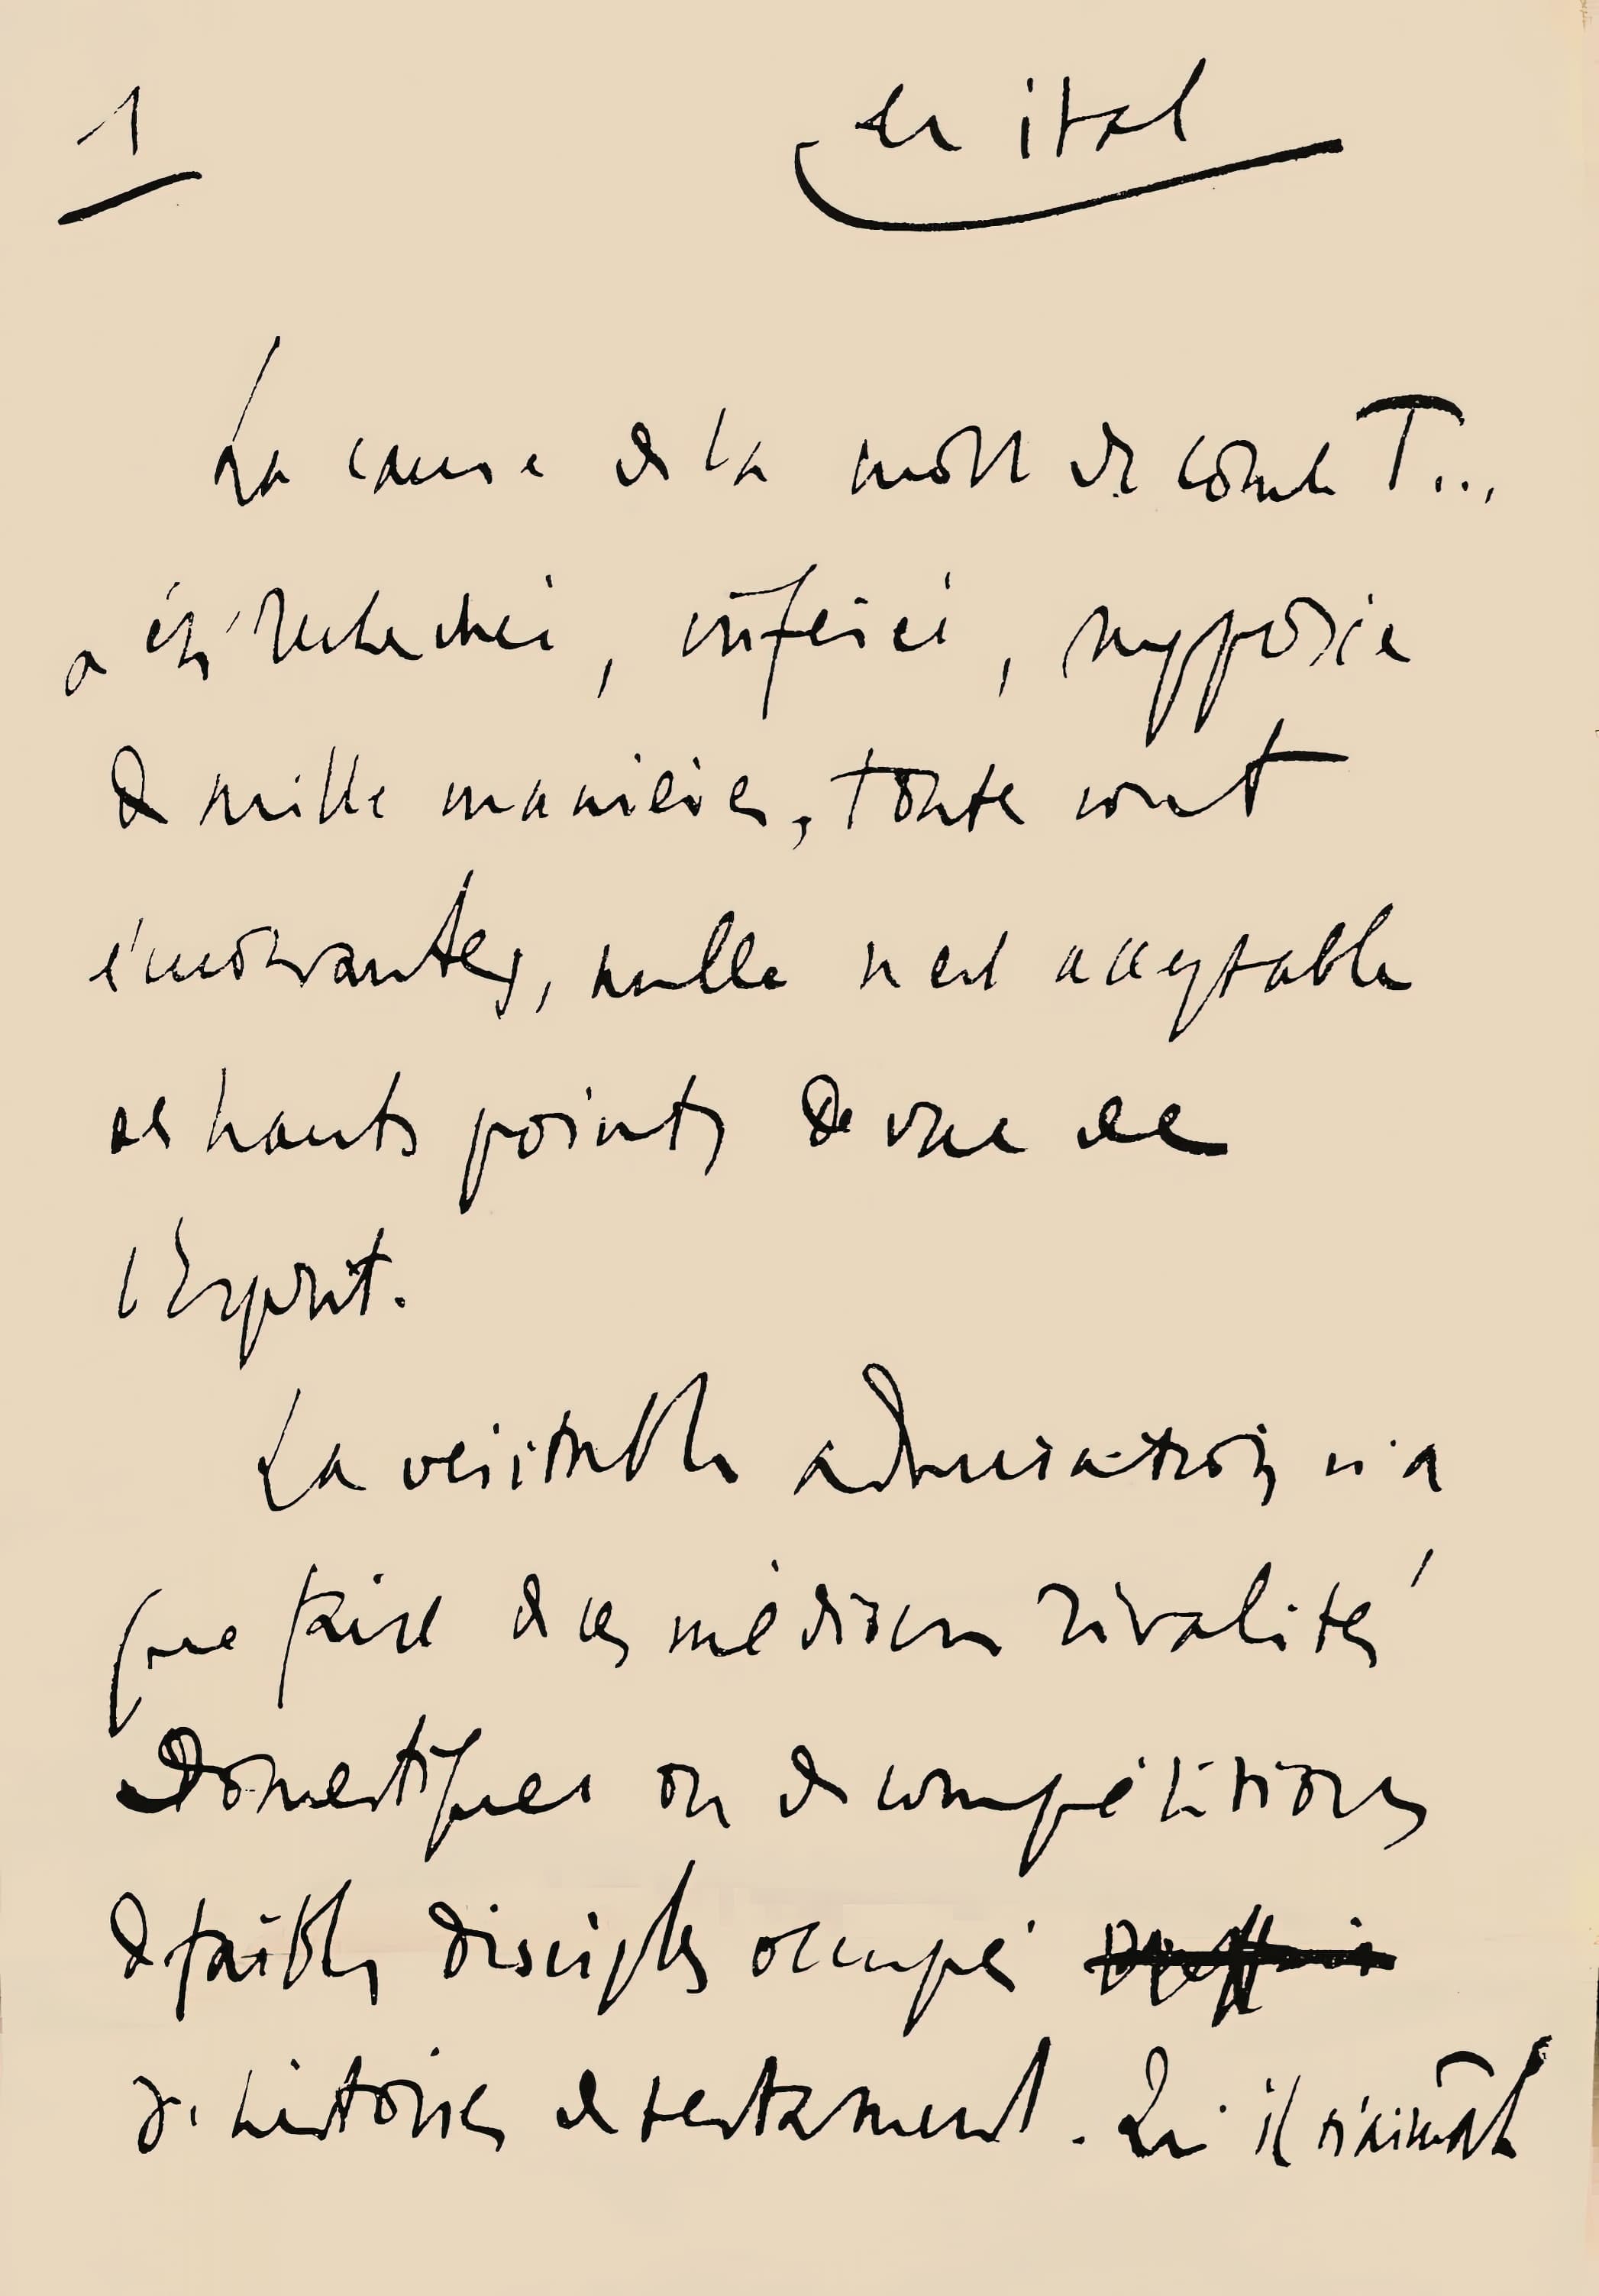 1
en ital
La cause de la mort de comte T...
a été recherchée, inférée, supposée
de mille manières, toutes sont
émouvantes, nulle n'est acceptable
des hauts points de vue de
l'Esprit.
La véritable admiration n'a
que faire de ces médiocres rivalités
domestiques ou de compétitions
de faibles disciples occupés
d'histoires de testament.